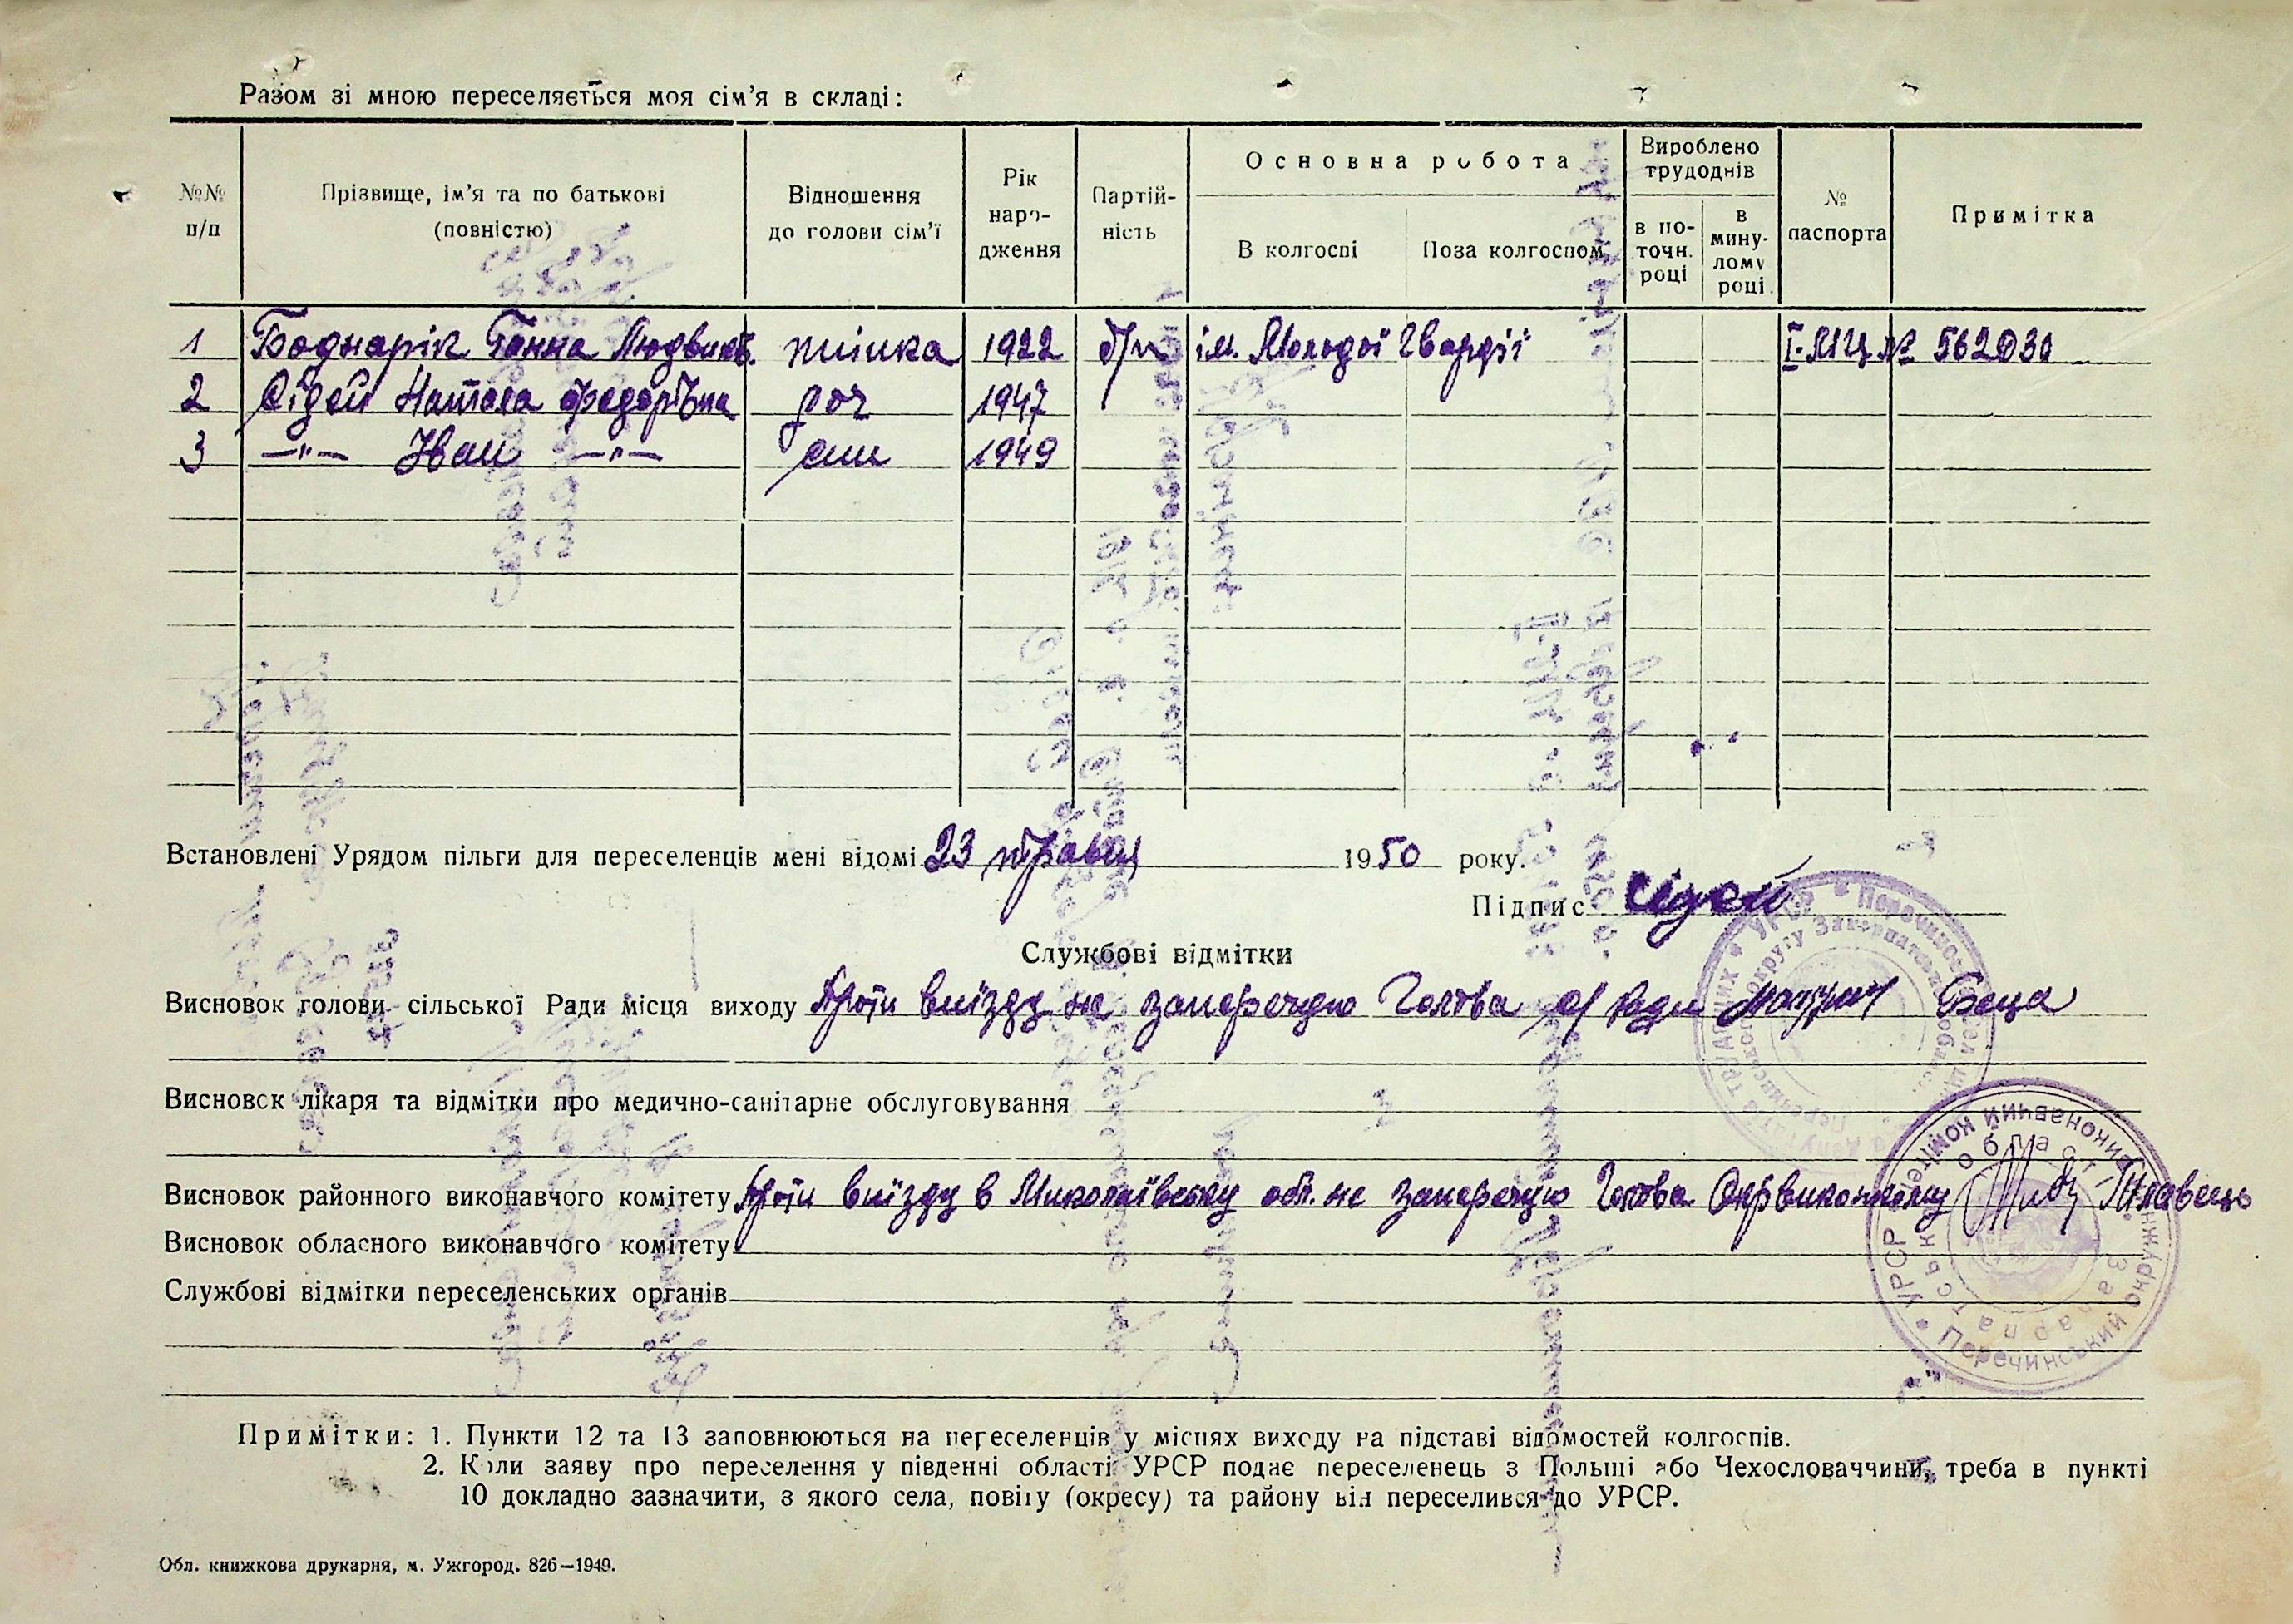 Разом зі мною переселяється моя сім'я в складі:
№№ п/п
Прізвище, ім'я та по батькові (повністю)
Відношення до голови сім'ї
Рік наро-дження
Партій-ність
Основна робота
В колгоспі
Поза колгоспом
Вироблено трудоднів
в по-точн. році
в мину-лому році
№ паспорта
Примітка
1 Боднарік Ганна Людвиків. жінка 1922 б/п ім. Молодої Гвардії І-МЦ № 562030
2 Сідей Наталя Федорівна доч 1947
3 —"— Іван —"— син 1949
Встановлені Урядом пільги для переселенців мені відомі 23 травня 1950 року.
Підпис Сідей
Службові відмітки
Висновок голови сільської Ради місця виходу Проти виїзду не заперечую Голова с/Ради Беца
Висновок лікаря та відмітки про медично-санітарне обслуговування
Висновок районного виконавчого комітету Проти виїзду в Миколаївську обл. не заперечую Голова Окрвиконкому Плавець
Висновок обласного виконавчого комітету
Службові відмітки переселенських органів
Примітки: 1. Пункти 12 та 13 заповнюються на переселенців у місцях виходу на підставі відомостей колгоспів.
2. Коли заяву про переселення у південні області УРСР подає переселенець з Польщі або Чехословаччини, треба в пункті
10 докладно зазначити, з якого села, повіту (окресу) та району він переселився до УРСР.
Обл. книжкова друкарня, м. Ужгород. 826—1949.